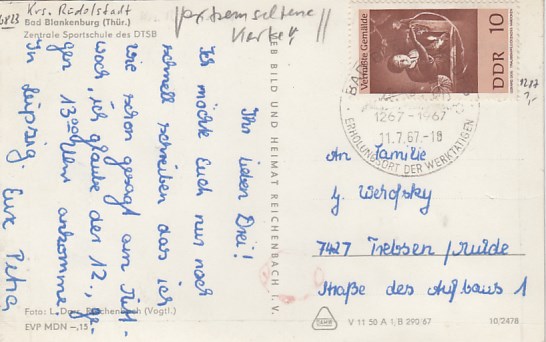 6823
Krs. Rudolstadt
Bad Blankenburg (Thür.)
Zentrale Sportschule des DTSB
Ihr lieben Drei!
Ich möchte Euch nur noch
schnell schreiben das ich
wie schon gesagt am Mitt-
woch, ich glaube der 12., ge-
gen 13 00 Uhr ankomme
in Leipzig. Eure Petra
Foto: L. Reichenbach (Vogtl.)
EVP MDN –,15
VEB BILD UND HEIMAT REICHENBACH I. V.
Vermißte Gemälde
DDR 10
1267-1967
11.7.67.-18
ERHOLUNGSORT DER WERKTÄTIGEN
An Familie
7427 Trebsen / Mulde
Straße des Aufbaus 1
V 11 50 A 1; B 290/67
10/2478